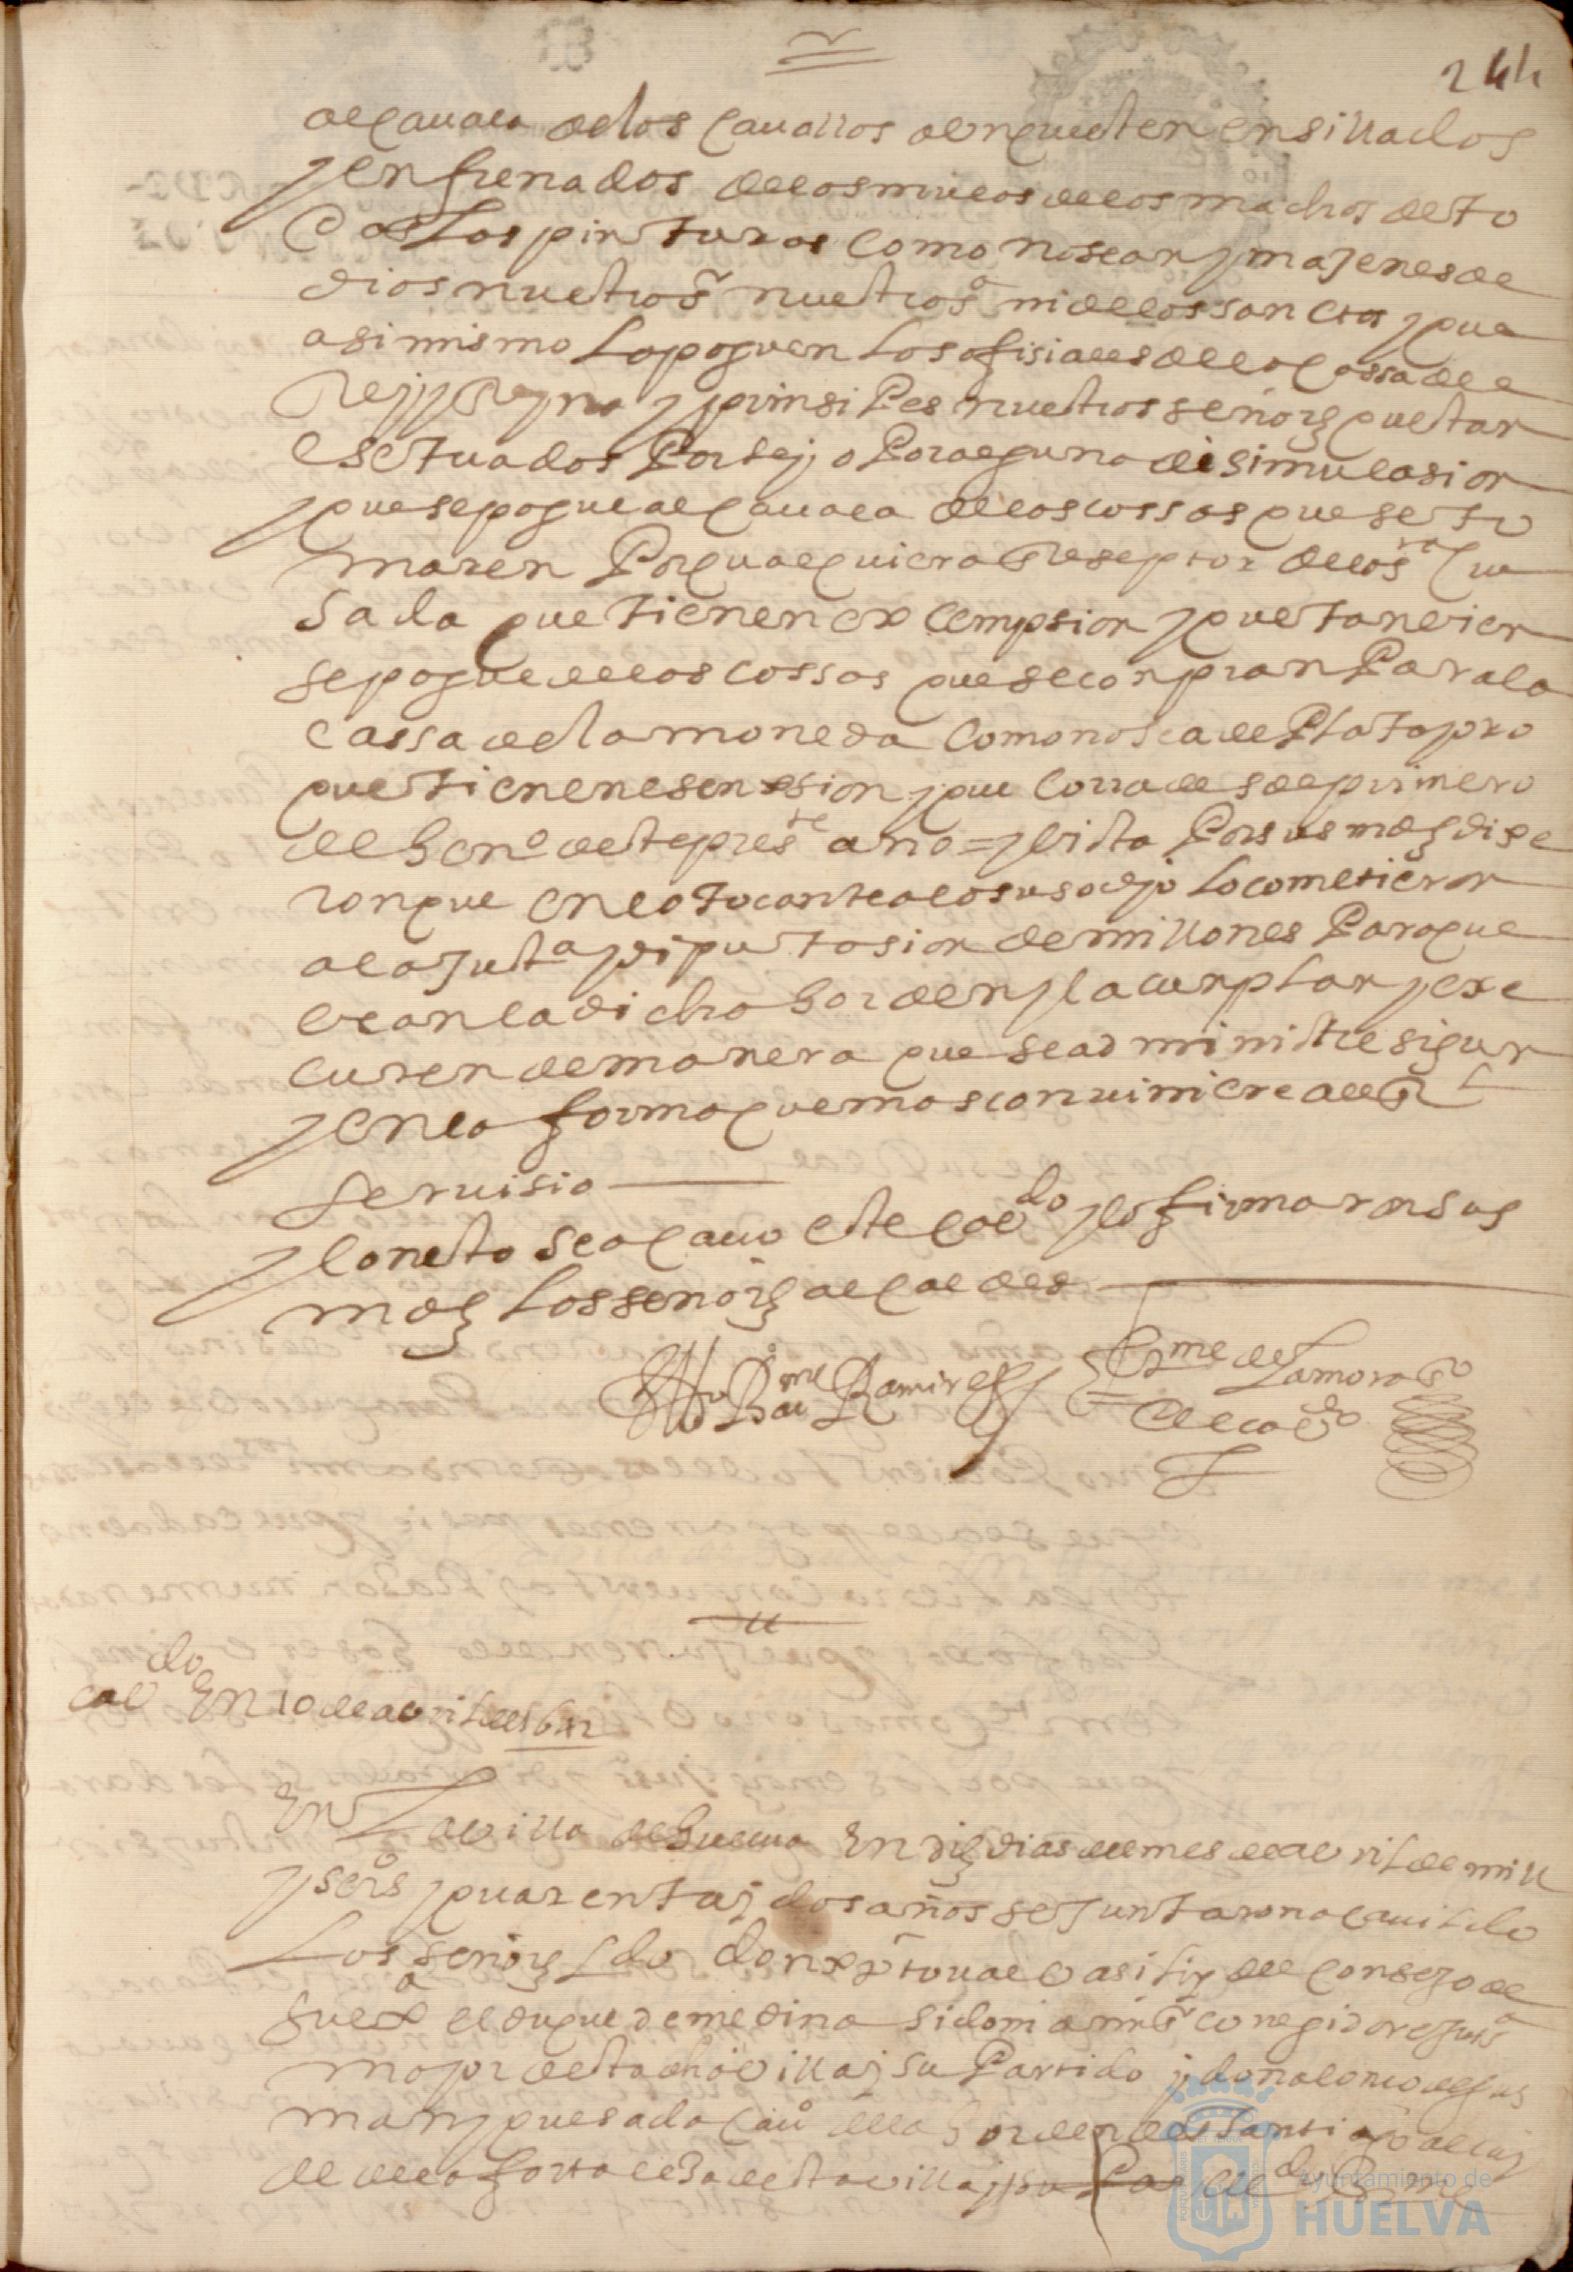 244
alcauala de los cauallos avnque esten ensillados
y enfrenados de los mulos de los machos de to
das las pinturas como no sean ymajenes de
dios nuestro sr nuestra sa ni de los sanctos y que
asimismo lo paguen los ofisiales de la cassa del
Rey y Reyna y prinsipes nuestros señores questan
esetuados Por sejo o Por alguna disimulasion
y que se pague alcauala de las cossas que se to
maren Por qualquiera Reseptor de la sta Cru
sada que tienen exsempsion y que tanvien
se pague de las cossas que se conpran Para la
cassa de la moneda como no sea de Plata pro
que tienen esension y que corra desde primero
de henº deste preste año = y vista Por sus mdes dixe
ron que en lo tocante a lo susodho lo cometieron
a la Justa y diputasion de millones Para que
vean la dicha horden y la cunplan y exe
cuten de manera que se administre sigun
y en la forma que mas conviniere al Rl
seruisio
y con esto se acauo este cavdo y lo firmaron sus
mdes los señores alcaldes
Bme Ramires
Bme de Zamora
de cavdo
cavdo En 10 de avril de 1642
En La villa de huelua En dies dias del mes de avril de mill
y seisº y quarenta y dos años se Juntaron a cauildo
Los señores Ldo don xptoual vasilio del consejo de
guerª el duque de medina sidonia mi sr corregidor e Justa
mayor desta dha villa y su Partido y don alonso de gus
man y quesada cauº de la horden de Santiago alcay
de de la fortalesa desta villa y su Par
Ayuntamiento de
HUELVA